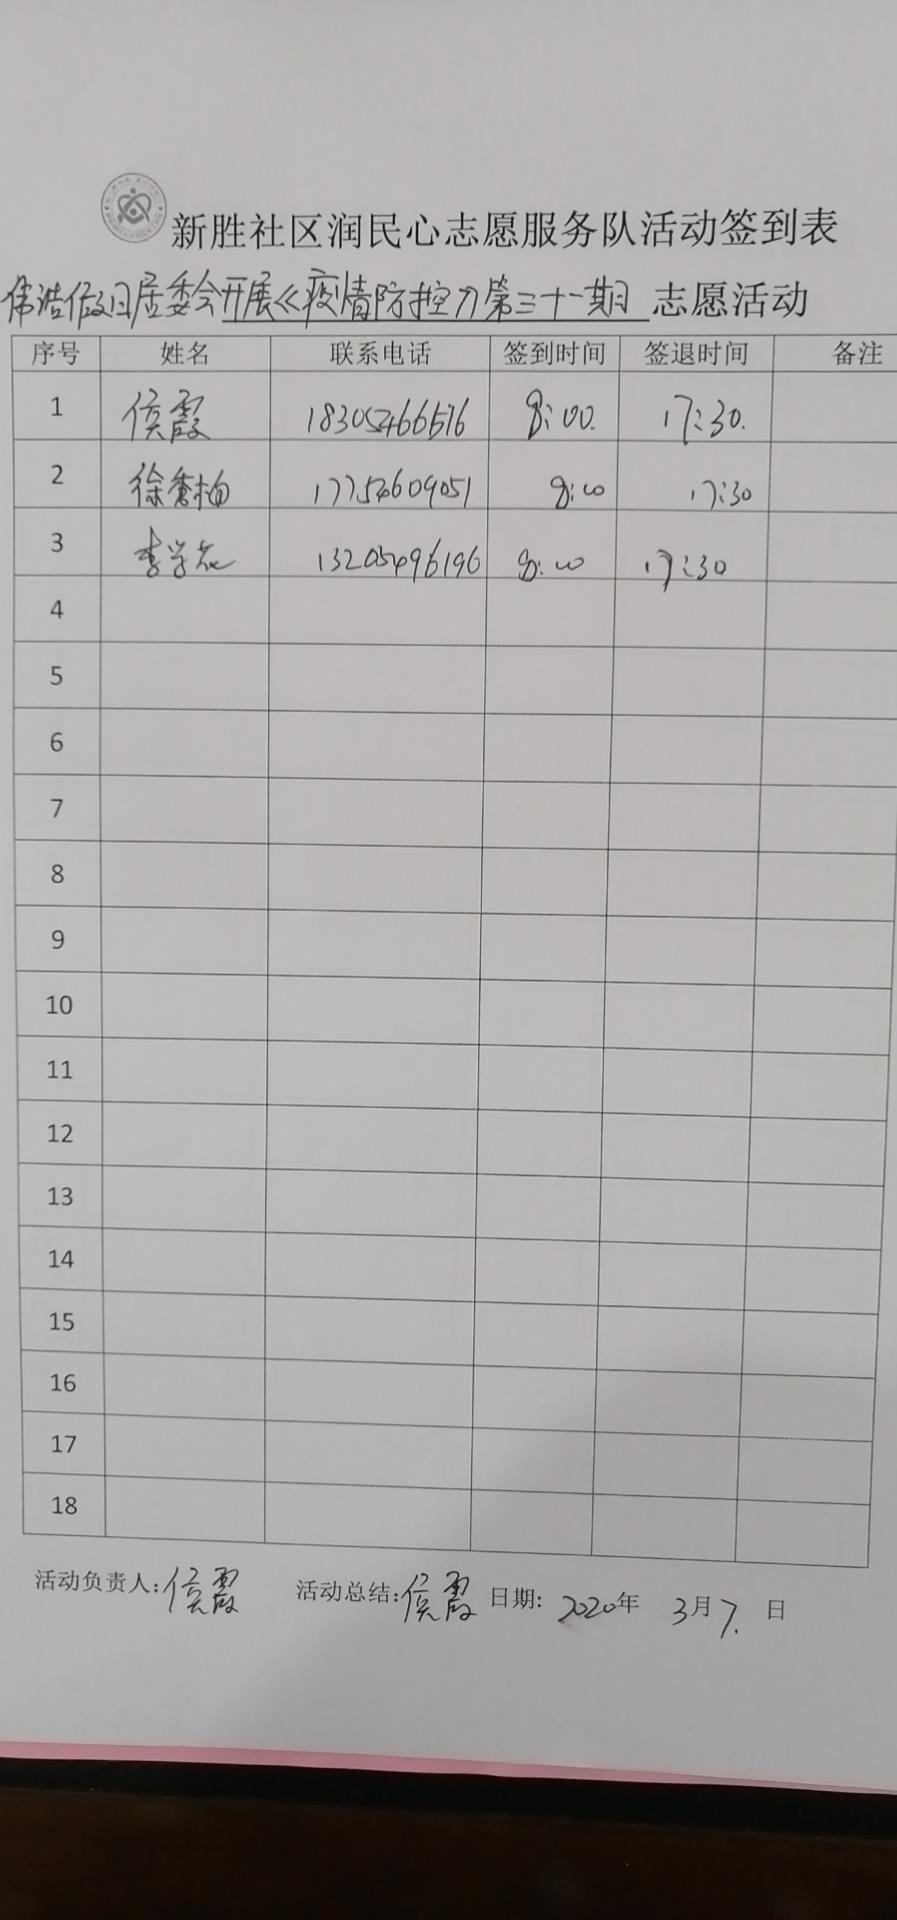 新胜社区润民心志愿服务队活动签到表
伟浩假日居委会开展《疫情防控》第三十一期 志愿活动
序号 姓名 联系电话 签到时间 签退时间 备注
1 侯霞 18305466576 8:00. 17:30.
2 徐秀柏 17754609051 8:00 17:30
3 李学花 13205496196 8:00 17:30
4
5
6
7
8
9
10
11
12
13
14
15
16
17
18
活动负责人:侯霞 活动总结:侯霞 日期: 2020年 3月7.日